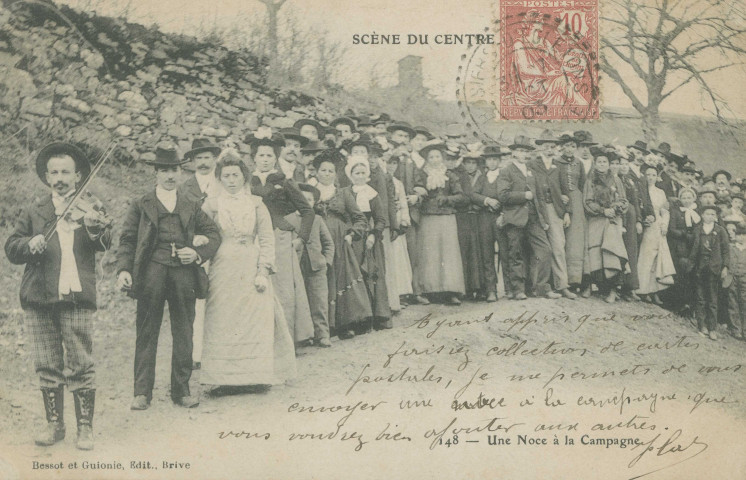 SCÈNE DU CENTRE
POSTES
10
Ayant appris que vous
faisiez collection de cartes
postales, je me permets de vous
envoyer une à la campagne que
vous voudrez bien ajouter aux autres.
148 — Une Noce à la Campagne
Bessot et Guionie, Edit., Brive